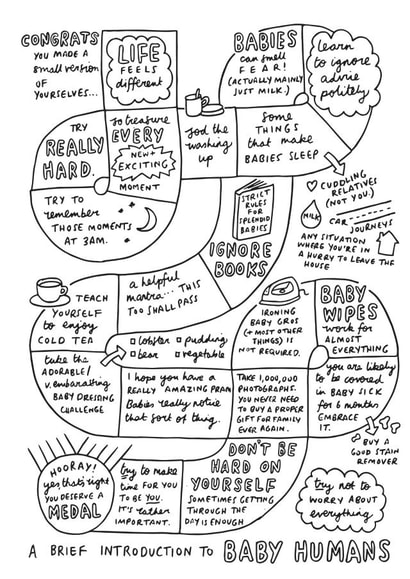 CONGRATS
YOU MADE A
small version
OF
YOURSELVES...
LIFE
FEELS
different
BABIES
can smell
FEAR!
(ACTUALLY MAINLY
JUST MILK.)
learn
to ignore
advie
politely
TRY
REALLY
HARD.
to treasure
EVERY
NEW +
EXCITING
MOMENT
sod the
washing
up
some
THINGS
that make
BABIES SLEEP
CUDDLING
RELATIVES
(NOT YOU.)
MILK
CAR
JOURNEYS
ANY SITUATION
WHERE YOU'RE IN
A HURRY TO LEAVE THE
HOUSE
TRY TO
remember
THOSE MOMENTS
AT 3AM.
STRICT
RULES
FOR
SPLENDID
BABIES
IGNORE
BOOKS
a helpful
mantra... THIS
TOO SHALL PASS
TEACH
YOURSELF
to enjoy
COLD TEA
IRONING
BABY GROS
(+ MOST OTHER
THINGS) IS
NOT REQUIRED.
BABY
WIPES
work for
ALMOST
EVERYTHING
take the
ADORABLE/
v. embarassing
BABY DRESSING
CHALLENGE
lobster pudding
bear vegetable
I hope you have a
REALLY AMAZING PRAM
Babies really notice
that sort of thing.
TAKE 1,000,000
PHOTOGRAPHS.
YOU NEVER NEED
TO BUY A PROPER
GIFT FOR FAMILY
EVER AGAIN.
you are likely
to be covered
in BABY SICK
for 6 months
EMBRACE
IT.
BUY A
GOOD STAIN
REMOVER
HOORAY!
yes, that's right
YOU DESERVE A
MEDAL
try to make
time FOR YOU
TO BE YOU.
IT'S rather
IMPORTANT.
DON'T BE
HARD ON
YOURSELF
SOMETIMES GETTING
THROUGH THE
DAY IS ENOUGH
try not to
WORRY ABOUT
everything
A BRIEF INTRODUCTION TO BABY HUMANS